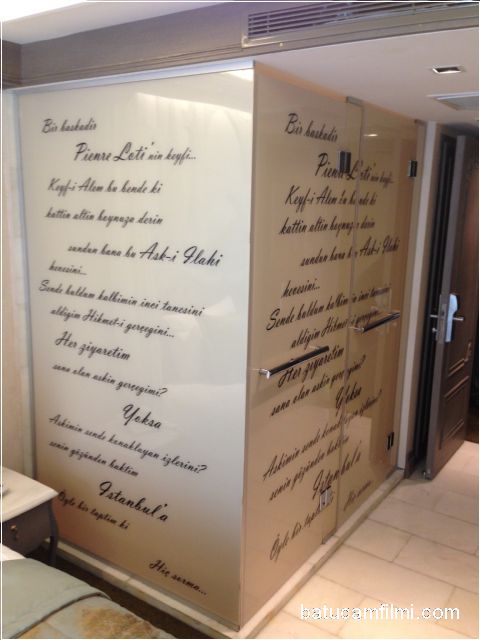 Bir baskadir
Pierre Loti'nin keyfi...
Keyf-i Alem bu bende ki
kattin altin boynuza derin
sundun bana bu Ask-i Ilahi
hevesini...
Sende buldum kalbimin inci tanesini
aldigim Hikmet-i gerçegini...
Her ziyaretim
sana olan askin gerçegimi?
Yoksa
Askimin sende konaklayan izlerini?
senin gözünden baktim
Istanbul'a
Öyle bir taptim ki
Hiç sorma...
Bir baskadir
Pierre Loti'nin keyfi...
Keyf-i Alem bu bende ki
kattin altin boynuza derin
sundun bana bu Ask-i Ilahi
hevesini...
Sende buldum kalbimin inci tanesini
aldigim Hikmet-i gerçegini...
Her ziyaretim
sana olan askin gerçegimi?
Yoksa
Askimin sende konaklayan izlerini?
senin gözünden baktim
Istanbul'a
Öyle bir taptim
Hiç sorma...
batucamfilmi.com